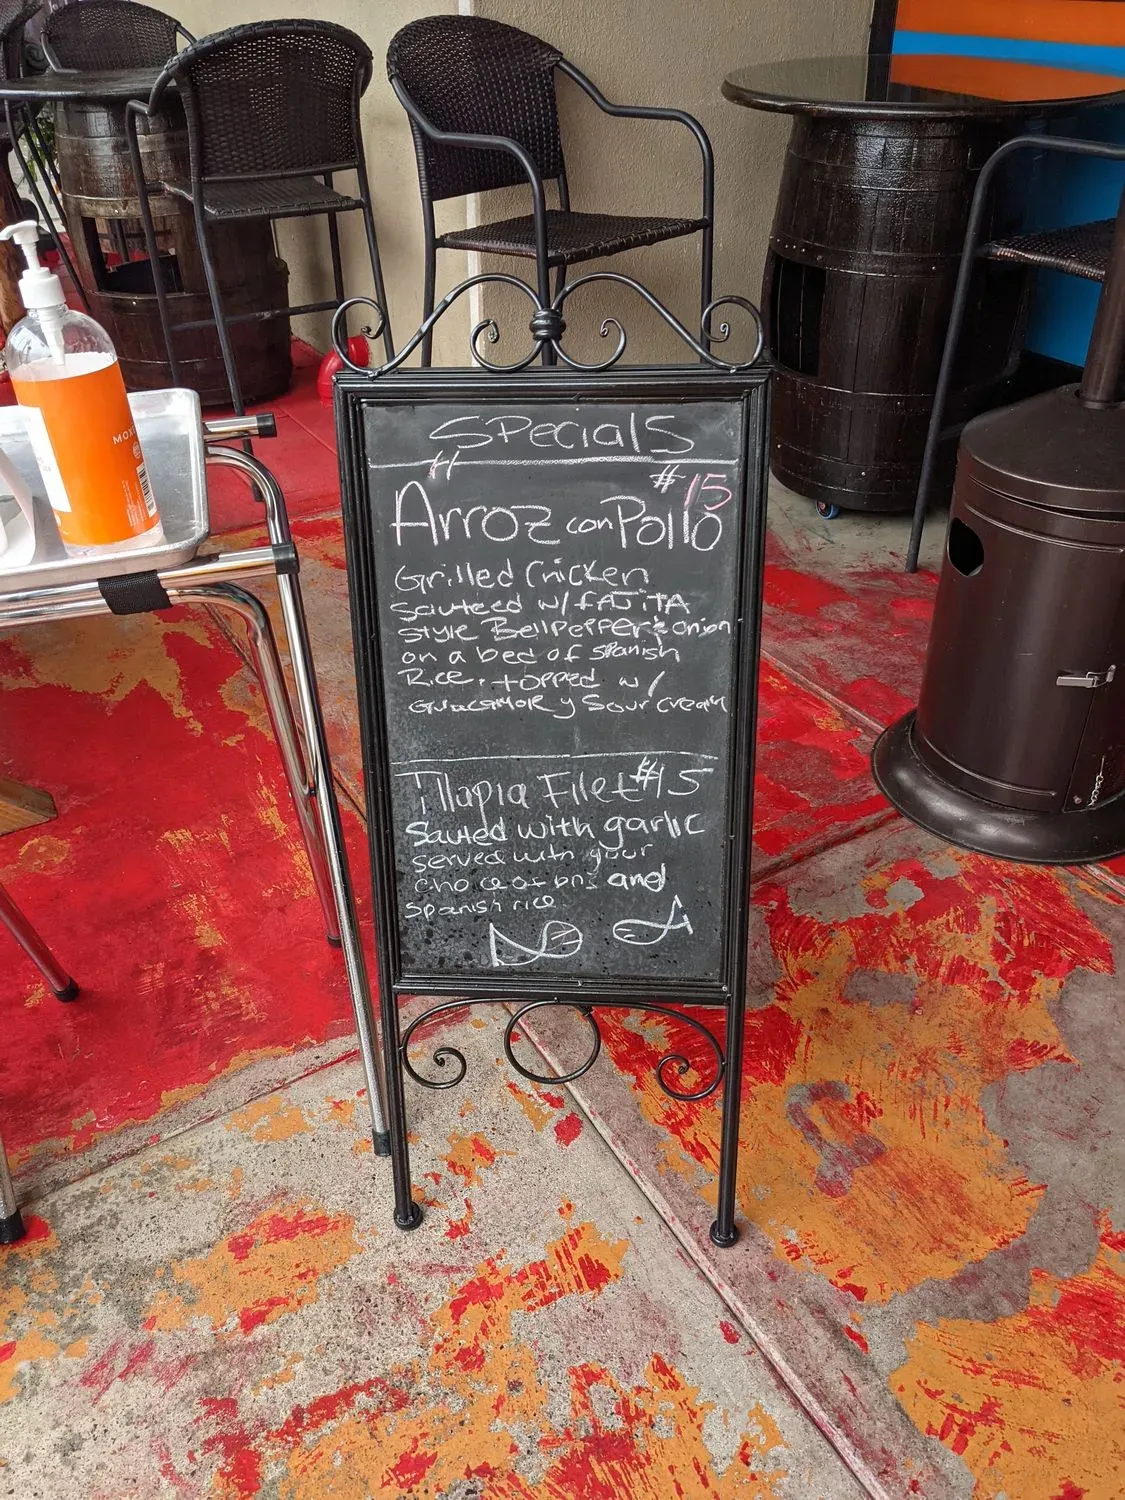 SPecialS
#15
Arroz con Pollo
Grilled Chicken
sauteed w/ fAJiTA
style BellPePPer & onion
on a bed of Spanish
Rice. topped w/
Guacamole y Sour cream
TIlapia Filet #15
Sauted with garlic
served with your
choice of bns and
Spanish rice